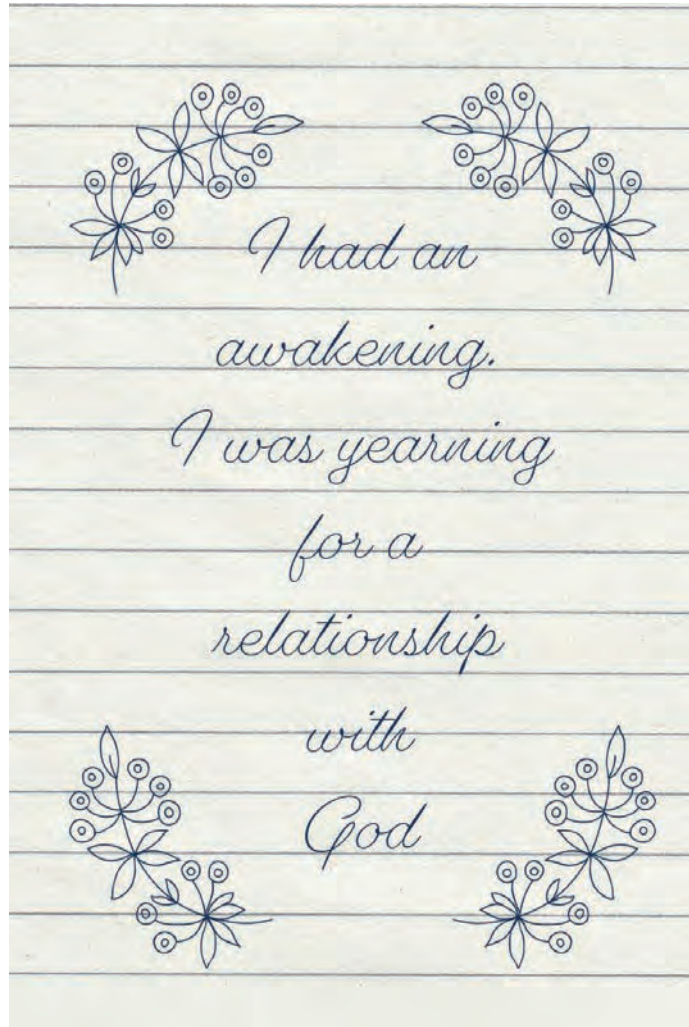 I had an
awakening.
I was yearning
for a
relationship
with
God